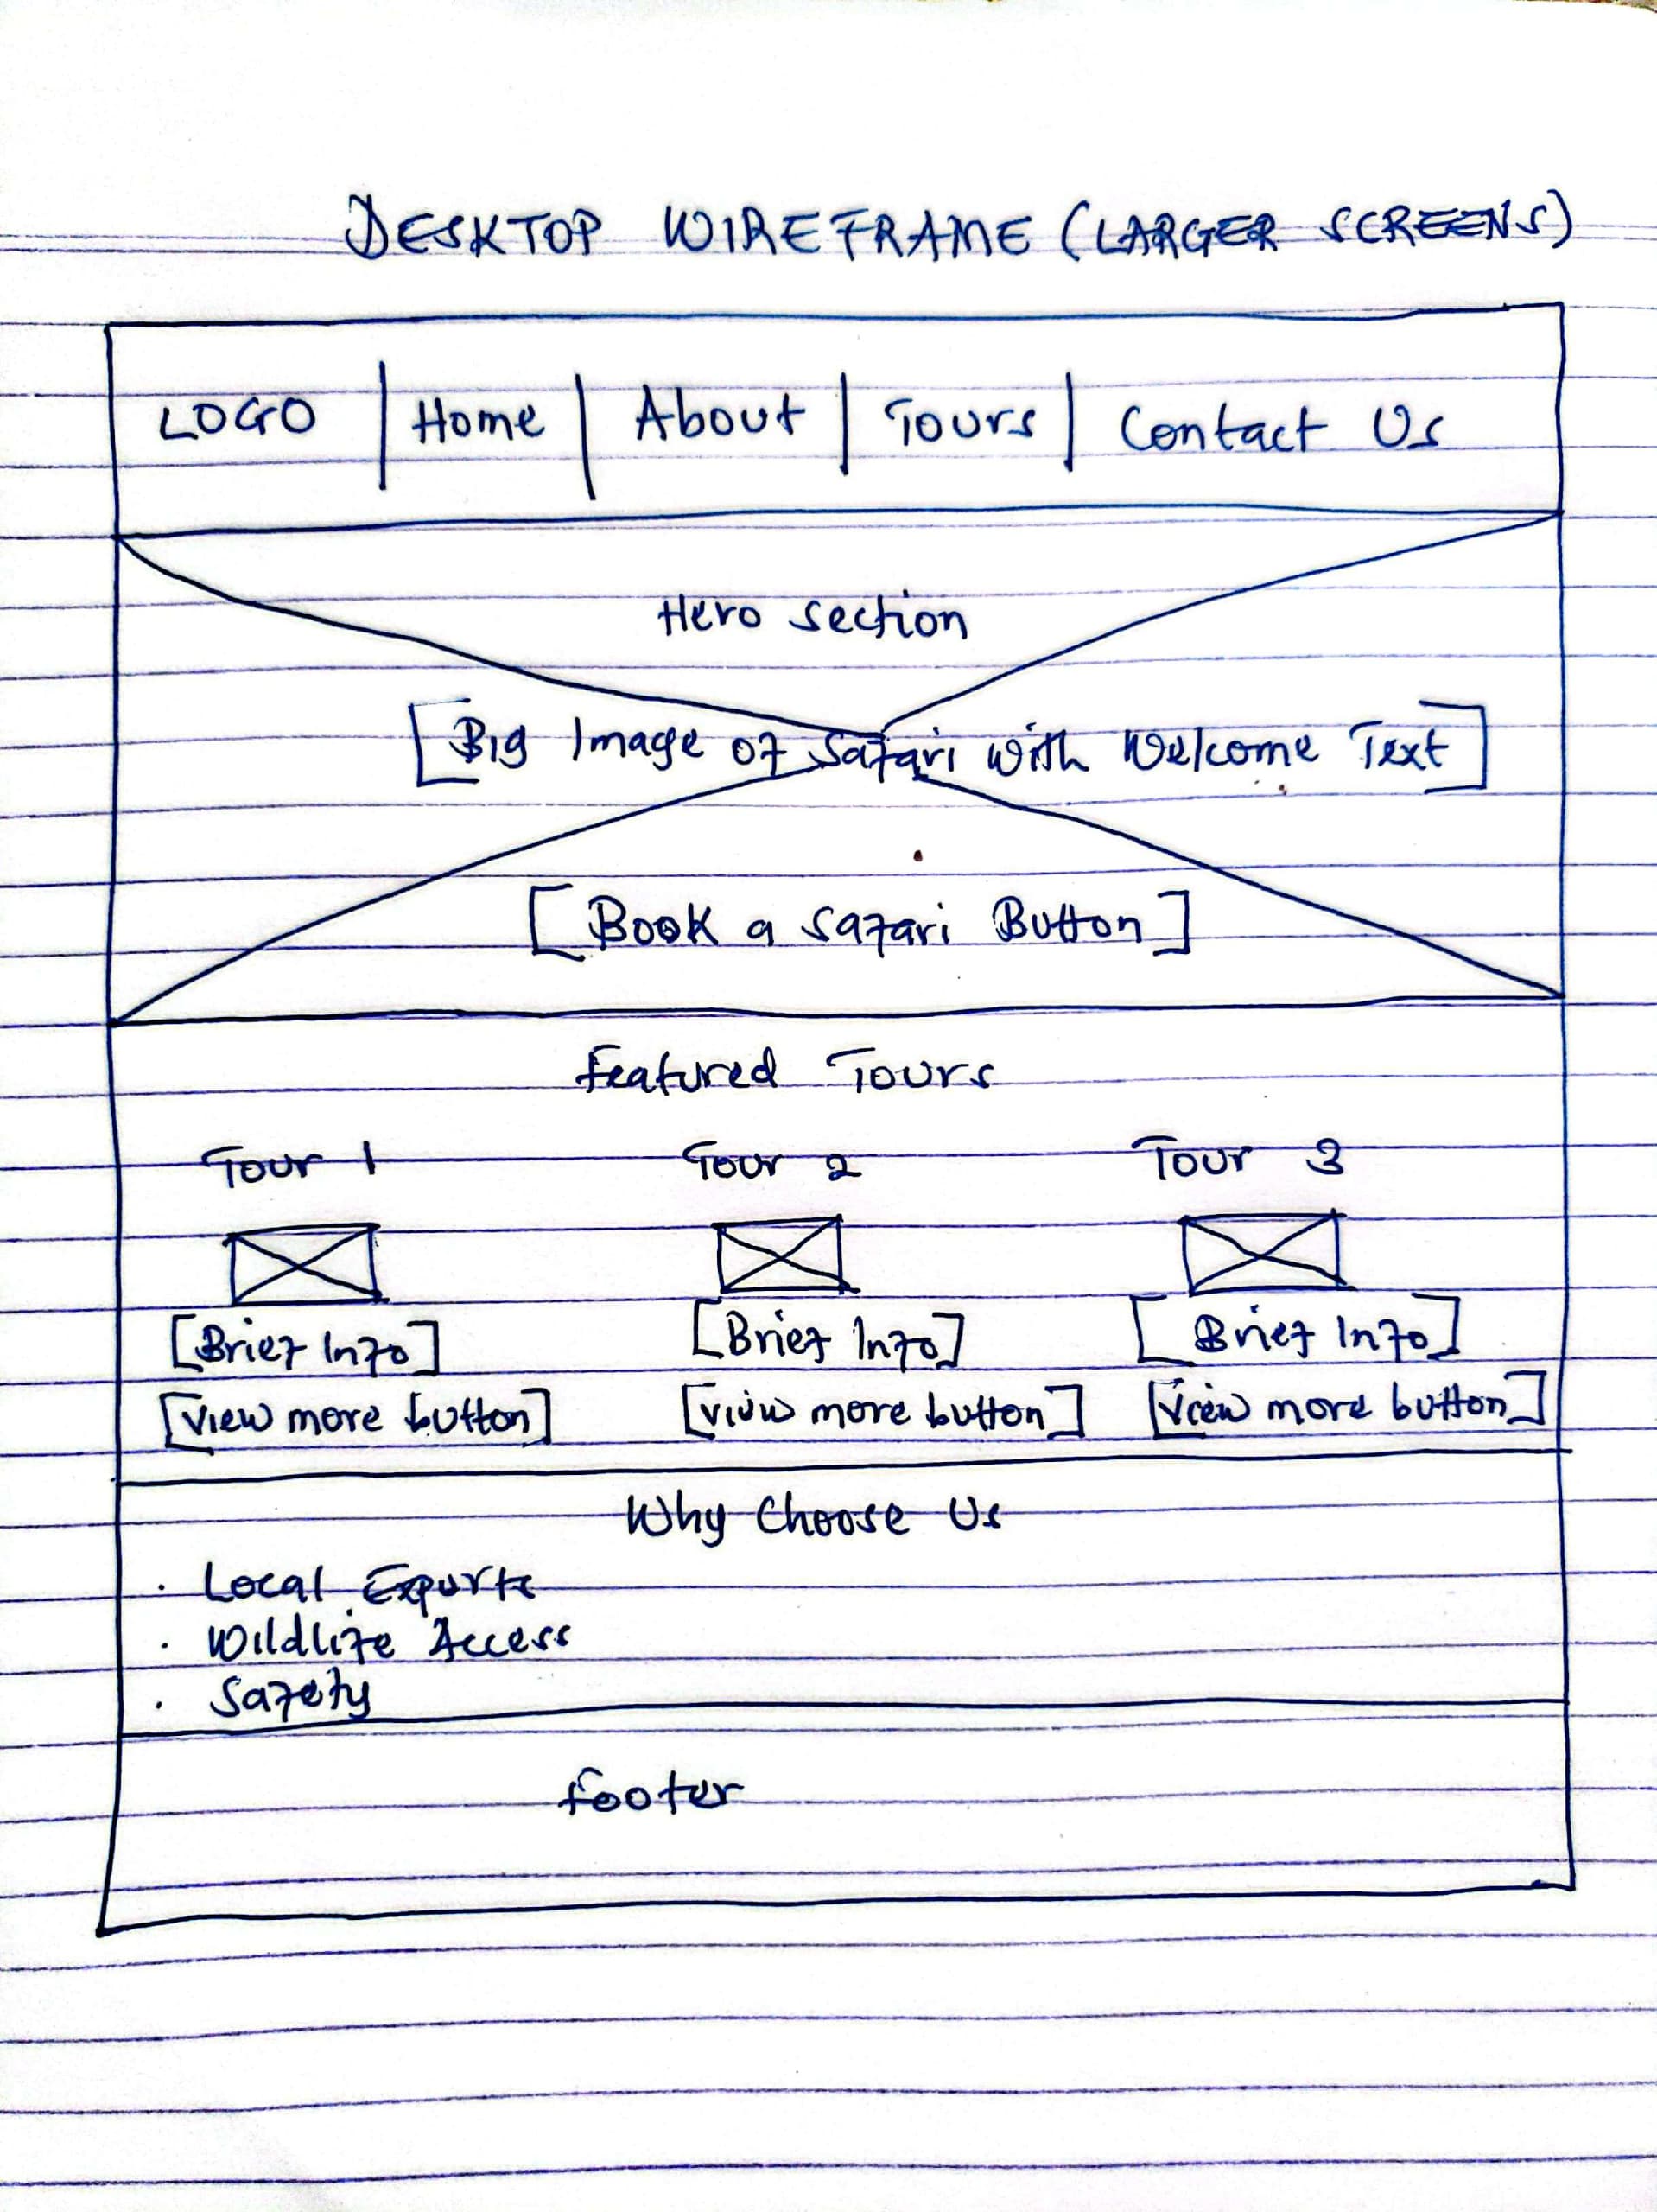 DESKTOP WIREFRAME (LARGER SCREENS)
LOGO | Home | About | Tours | Contact Us
Hero section
[Big Image of Safari with Welcome Text]
[Book a Safari Button]
Featured Tours
Tour 1 Tour 2 Tour 3
[Brief Info] [Brief Info] [Brief Info]
[View more button] [view more button] [View more button]
Why Choose Us
· Local Experts
· Wildlife Access
· Safety
Footer